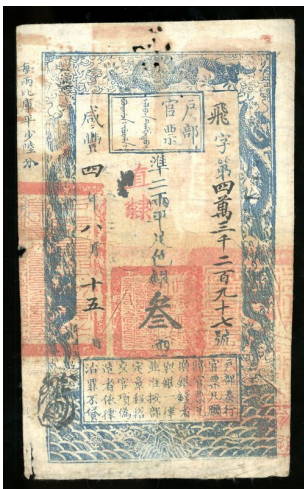 戶部
官票
飛字第四萬三千二百九十七號
準二兩平足色銀叁兩
直隸
咸豐四年八月十五日
每兩比庫平少陸分
戶部奏行
官票凡願
將官票兌
換銀錢者
與銀一律
並准按部
定章程搭
交官項偽
造者依律
治罪不貸